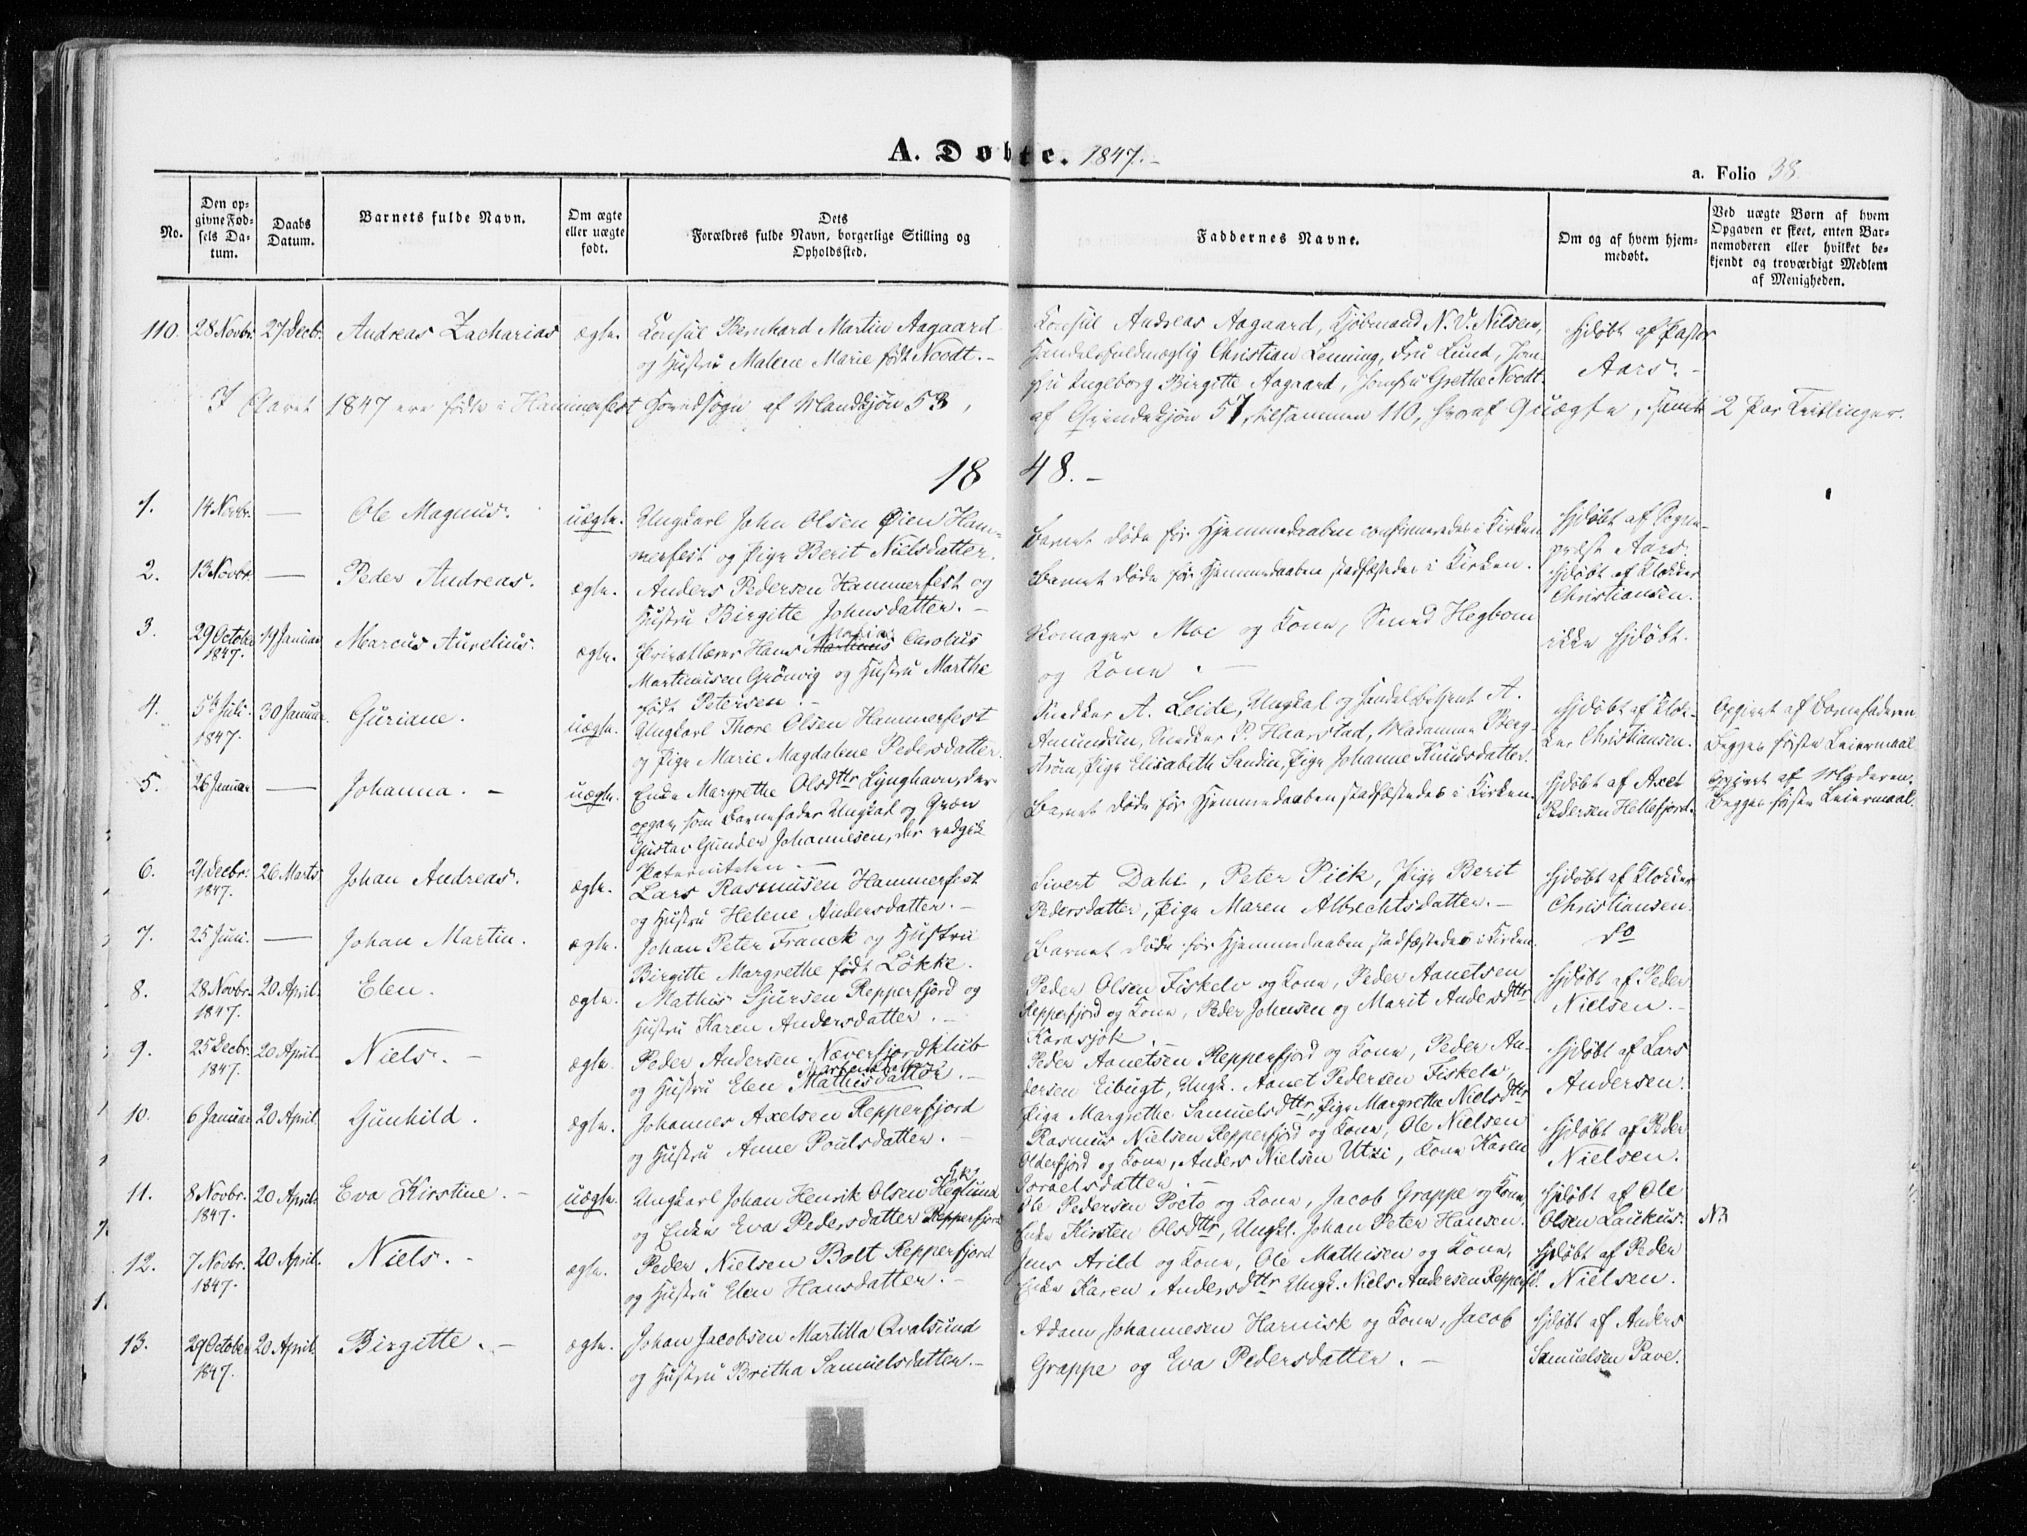 A. Døbte. 1847.-
a. Folio 38
No.
Den op-
givne Fød-
sels Da-
tum.
Daabs
Datum.
Barnets fulde Navn.
Om ægte
eller uægte
født.
Dets
Forældres fulde Navn, borgerlige Stilling og
Opholdssted.
Faddernes Navne.
Om og af hvem hjem-
medøbt.
Ved uægte Børn af hvem
Opgaven er skeet, enten Bar-
nemoderen eller hvilket be-
kjendt og troværdigt Medlem
af Menigheden.
110. 28 Novbr. 27 Decbr. Andreas Zacharias ægte.
Konsul Bernhard Martin Aagaard
og Hustru Malene Marie født Noodt.-
Konsul Andreas Aagaard, Kjøbmand N. V. Nilsen,
Handelsfuldmægtig Christian Lenning, Fru Lund, Jom-
fru Ingeborg Birgitte Aagaard, Jomfru Grethe Noodt.
Hjdøbt af Pastor
Aars.-
I Aaret 1847 ere fødte i Hammerfest Hovedsogn af Mandkjøn 53, af Qvindekjøn 57, tilsammen 110, hvoraf 9 uægte, samt 2 Par Tvillinger.
1848.-
1. 14 Novbr. — Ole Magnus. uægte.
Ungkarl John Olsen Øien Ham-
merfest og Pige Berit Nielsdatter.
Barnet døde før Hjemmedaaben confirmeredes i Kirken
Hjdøbt af Sogne-
præst Aars.
2. 13 Novbr. — Peder Andreas. ægte.
Anders Pedersen Hammerfest og
Hustru Birgitte Johnsdatter.-
Barnet døde før Hjemmedaaben stadfæstedes i Kirken.
Hjdøbt af Klokker
Christiansen.
3. 29 October 1847. 19 Januar Marcus Aurelius. ægte.
Privatlærer Hans Martinus Carolus
Martinusen Grönvig og Hustru Marthe
født Petersen.-
Skomager Moe og Kone, Smed Hegbom
og Kone.-
ikke Hjdøbt.
4. 5te Juli. 1847. 30 Januar. Guriane. uægte.
Ungkarl Thore Olsen Hammerfest
og Pige Marie Magdalene Pedersdatter.
Snedker A. Leide, Ungkarl og Handelsbetjent A.
Amundsen, Snedker P. Haarstad, Madamme Berg-
strøm, Pige Elisabeth Sandin, Pige Johanne Knudsdatter.
Hjdøbt af Klok-
ker Christiansen.
Opgivet af Barnefaderen
Begges første Leiermaal
5. 26 Januar — Johanna.- uægte.
Enke Margrethe Olsdttr Lynghavn, der
opgav som Barnefader Ungkarl og Qvæn
Gustav Gunder Johannesen, der vedgik
Paterniteten.-
Barnet døde før Hjemmedaaben stadfæstedes i Kirken.
Hjdøbt af Axel
Pedersen Hellefjord.
Opgivet af Moderen.
Begges første Leiermaal.
6. 21 Decbr. 1847. 26 Marts Johan Andreas. ægte.
Lars Rasmusen Hammerfest
og Hustru Helene Andersdatter.-
Sivert Dahl, Peter Pick, Pige Berit
Pedersdatter, Pige Maren Albrechtsdatter.-
Hjdøbt af Klokker
Christiansen.
7. 25 Juni. — Johan Martin. ægte.
Johan Peter Franck og Hustru
Birgitte Margrethe født Løkke.
Barnet døde før Hjemmedaaben stadfæstedes i Kirken.
do
8. 28 Novbr. 1847. 20 April. Elen. ægte.
Mathis Sjursen Repperfjord og
Hustru Karen Andersdatter.-
Peder Olsen Fiskelv og Kone, Peder Aanetsen
Repperfjord og Kone, Peder Johnsen og Marit Andersdttr
Karasjok.
Hjdøbt af Peder
Nielsen.-
9. 25 Decbr. 1847. 20 April. Niels.- ægte.
Peder Andersen Næverfjordklub
og Hustru Elen Mathisdatter.-
Peder Aanetsen Repperfjord og Kone, Peder An-
dersen Eibugt, Ungk. Aanet Pedersen Fiskelv,
Pige Margrethe Samuelsdttr, Pige Margrethe Nielsdttr
Hjdøbt af Lars
Andersen.
10. 6 Januar 20 April. Gunhild. ægte.
Johannes Axelsen Repperfjord
og Hustru Anne Poulsdatter.-
Rasmus Nielsen Repperfjord og Kone, Ole Nielsen
Olderfjord og Kone, Anders Nielsen Utzi, Kone Karen
Israelsdatter.-
Hjdøbt af Peder
Nielsen.
11. 8 Novbr. 1847. 20 April. Eva Kirstine.- uægte.
Ungkarl Johan Henrik Olsen Heglund
og Enke Eva Pedersdatter Repperfjord
Ole Pedersen Pocto og Kone, Jacob Grappe og Kone,
Enke Kirsten Olsdttr, Ungkl. Johan Peter Hansen.
Hjdøbt af Ole
Olsen Laukus.
12. 7 Novbr. 1847. 20 April. Niels.- ægte.
Peder Nielsen Bolt Repperfjord
og Hustru Elen Hansdatter.-
Jens Arild og Kone, Ole Mathisen og Kone,
Enke Karen Andersdttr, Ungk. Niels Andersen Repperfd.
Hjdøbt af Peder
Nielsen.
13. 29 October 1847. 20 April. Birgitte.- ægte.
Johan Jacobsen Martilla Qvalsund
og Hustru Britha Samuelsdatter.-
Adam Johannesen Harnisk og Kone, Jacob
Grappe og Eva Pedersdatter.-
Hjdøbt af Anders
Samuelsen Pave.